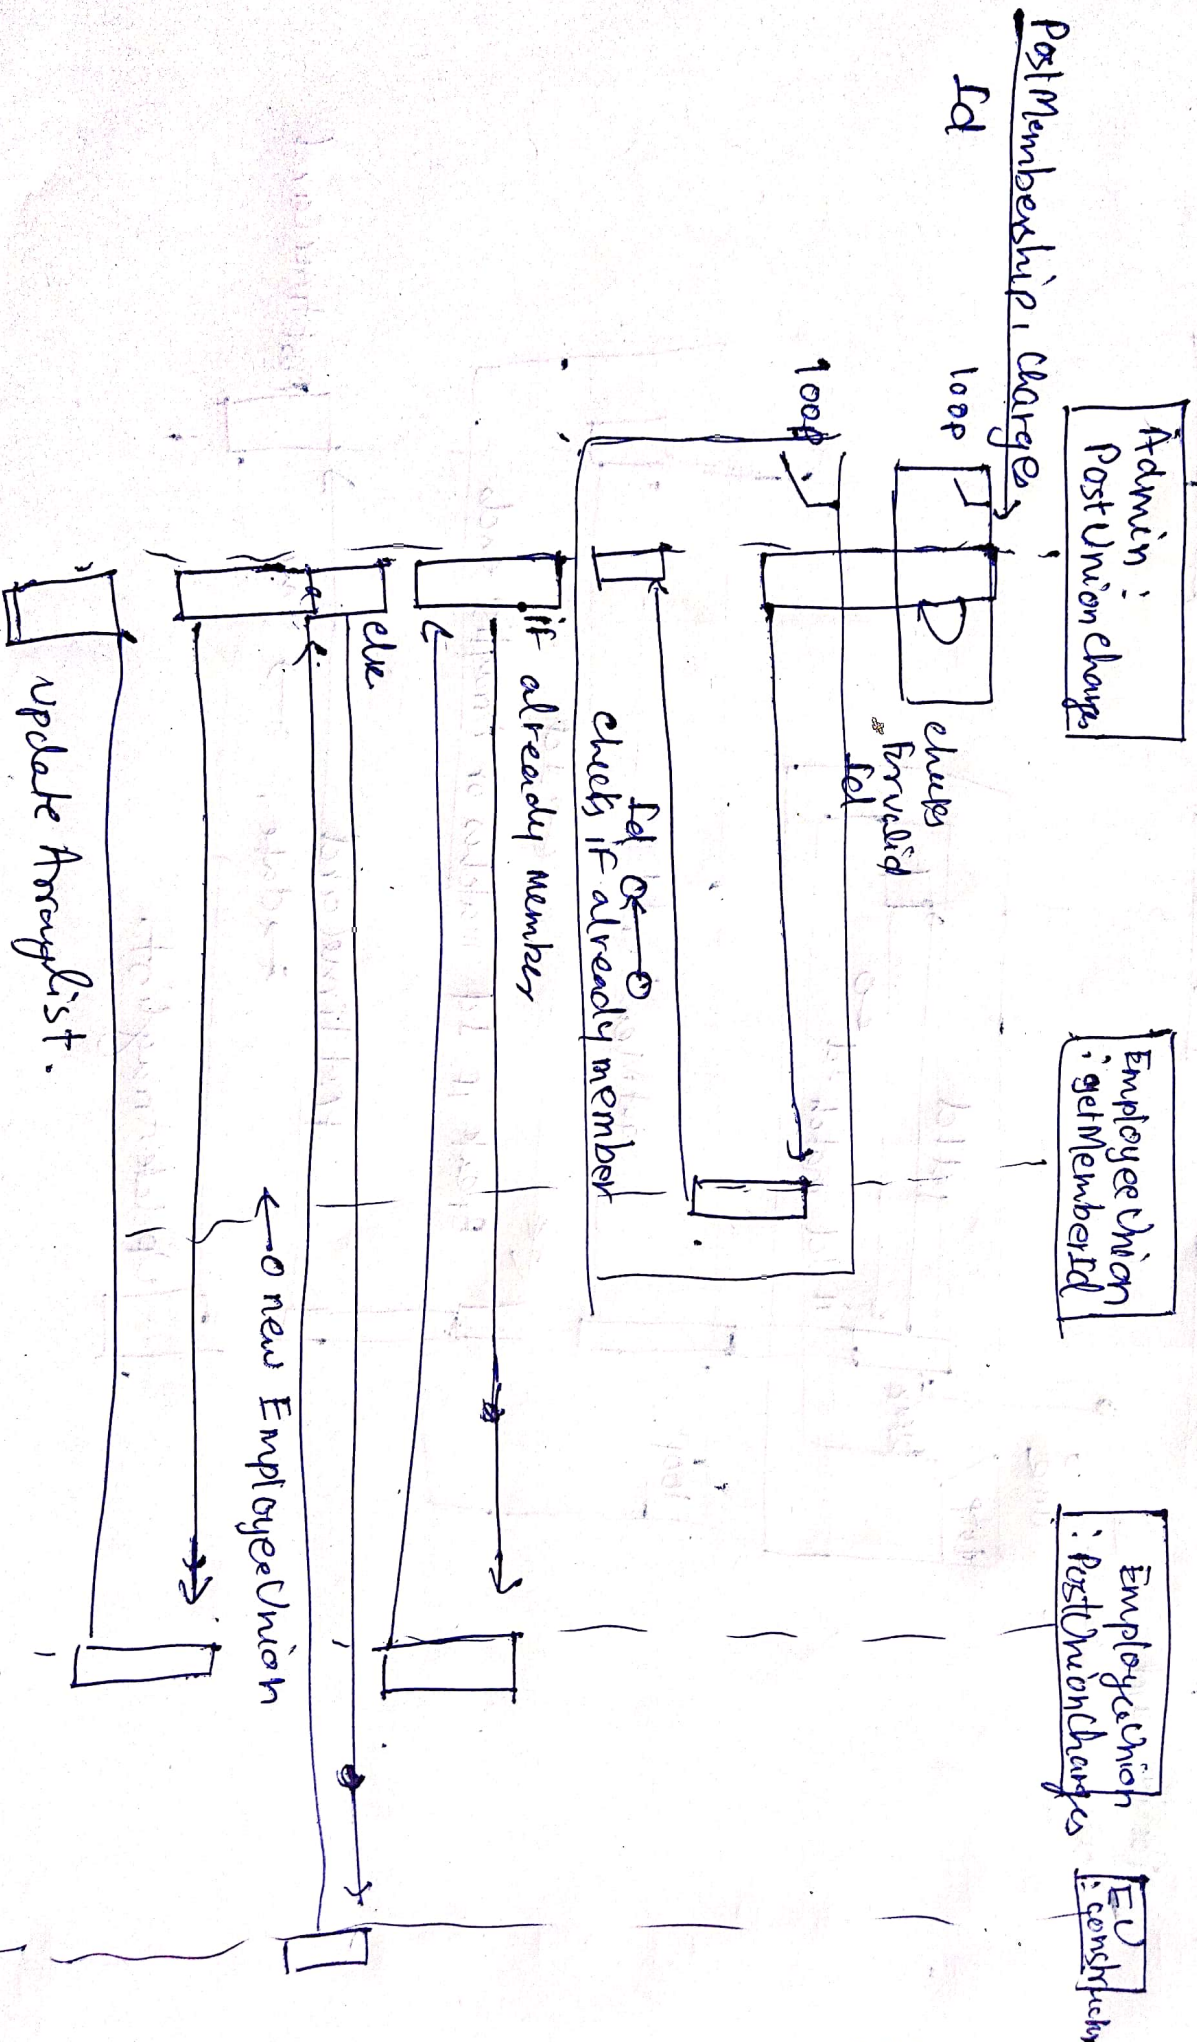 Admin :
PostUnionCharges
EmployeeUnion
: getMemberId
EmployeeUnion
: PostUnionCharges
EU
PostMembership, Charges
Id
loop
checks
Invalid
Id
loop
Id
checks if already member
if already member
else
new EmployeeUnion
Update Arraylist.